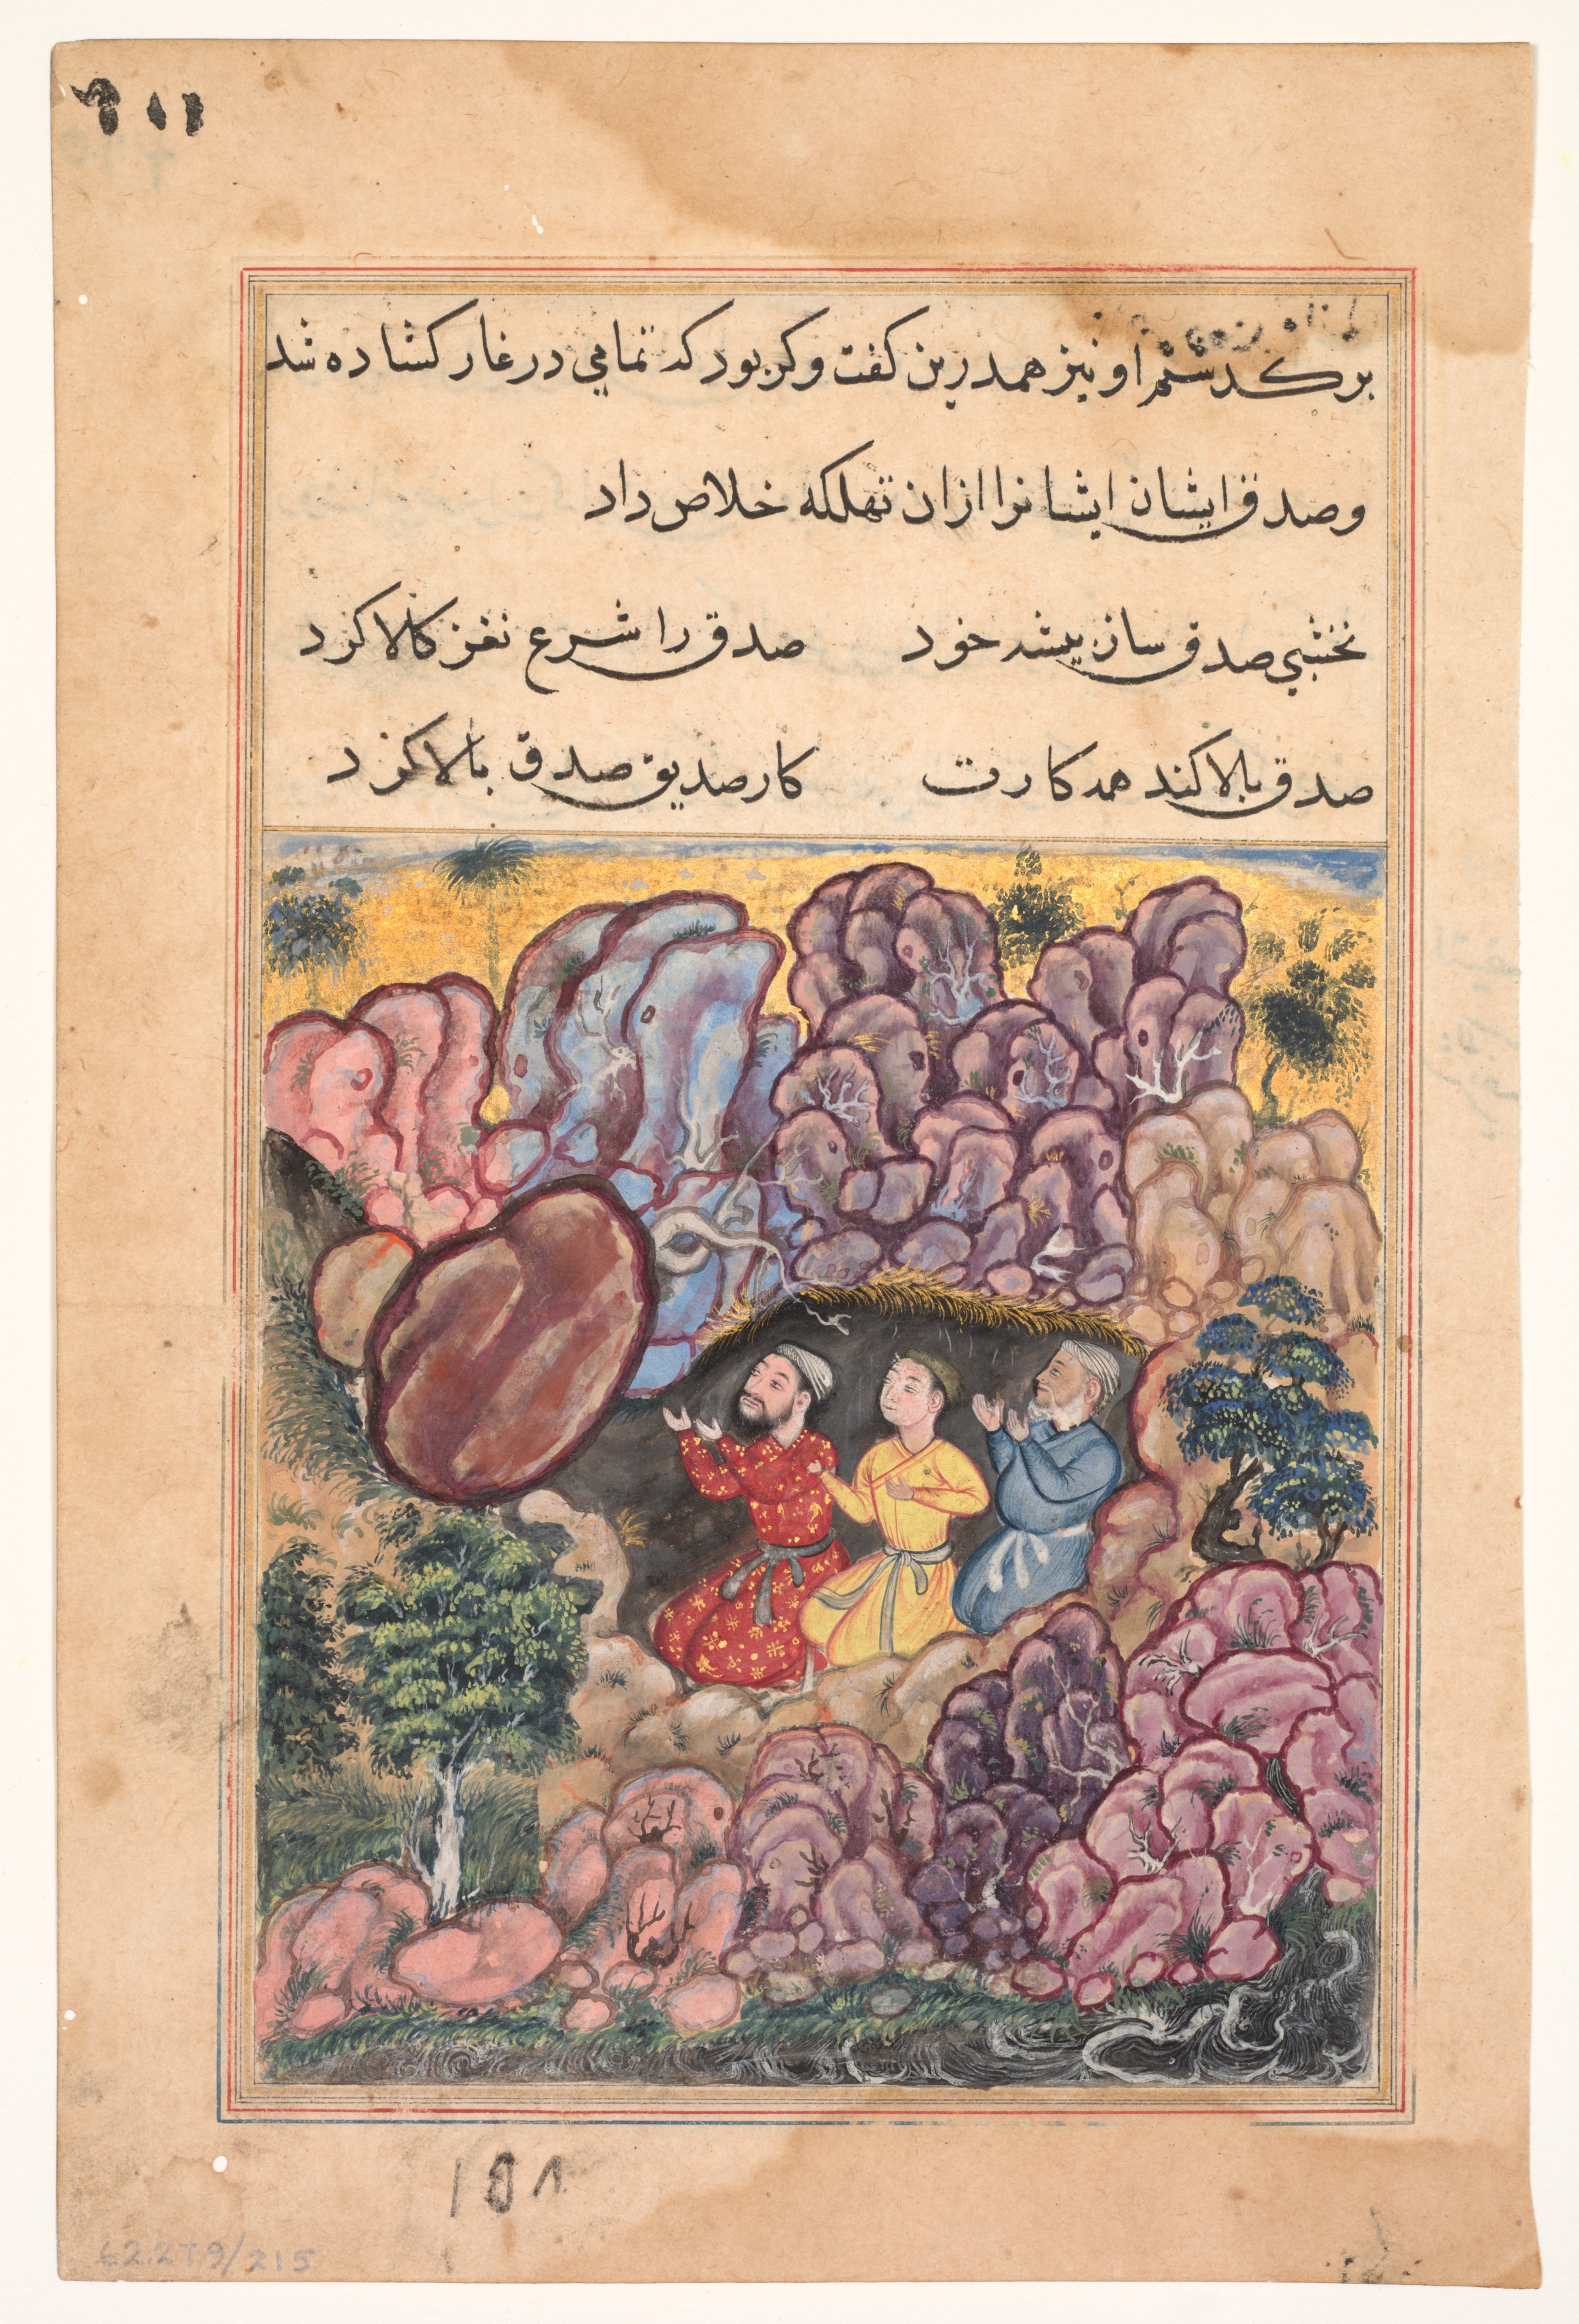 برگذشتم او نیز همدرین گفت و گر بود که تمامی در غار کشاده شد
و صدق ایشان ایشانرا ازان تهلکه خلاص داد
نخشبی صدق ساز پیشه خود صدق را شرع نغز کالا کرد
صدق بالا کند همه کارت کار صدیق صدق بالا کرد
۱۵۸
62.279/215